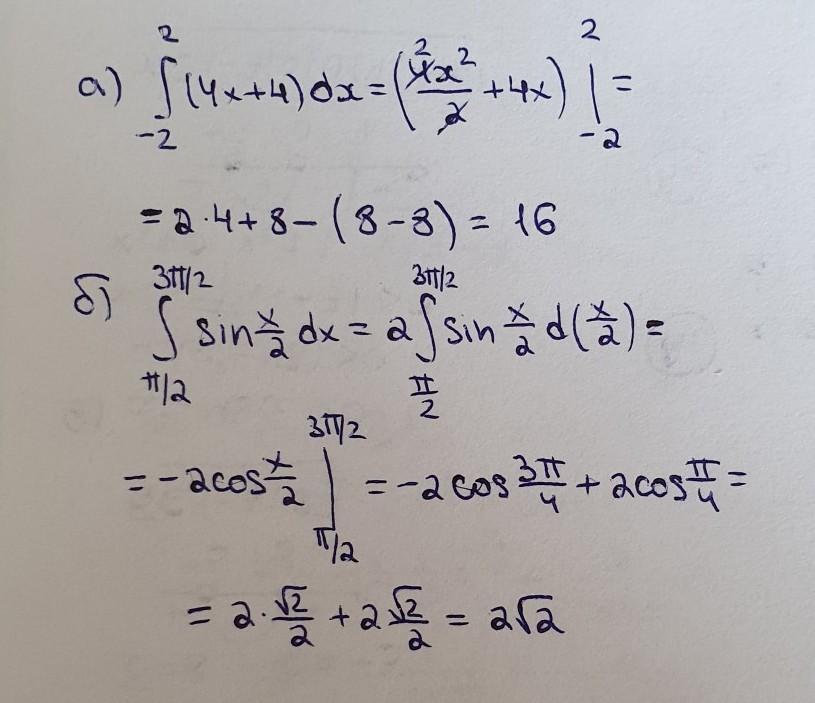 а) ∫₋₂² (4x+4)dx = (4x²/2 + 4x) |₋₂² =
= 2·4+8-(8-8) = 16
б) ∫_{π/2}^{3π/2} sin x/2 dx = 2∫_{π/2}^{3π/2} sin x/2 d(x/2) =
= -2cos x/2 |_{π/2}^{3π/2} = -2cos 3π/4 + 2cos π/4 =
= 2·√2/2 + 2 √2/2 = 2√2